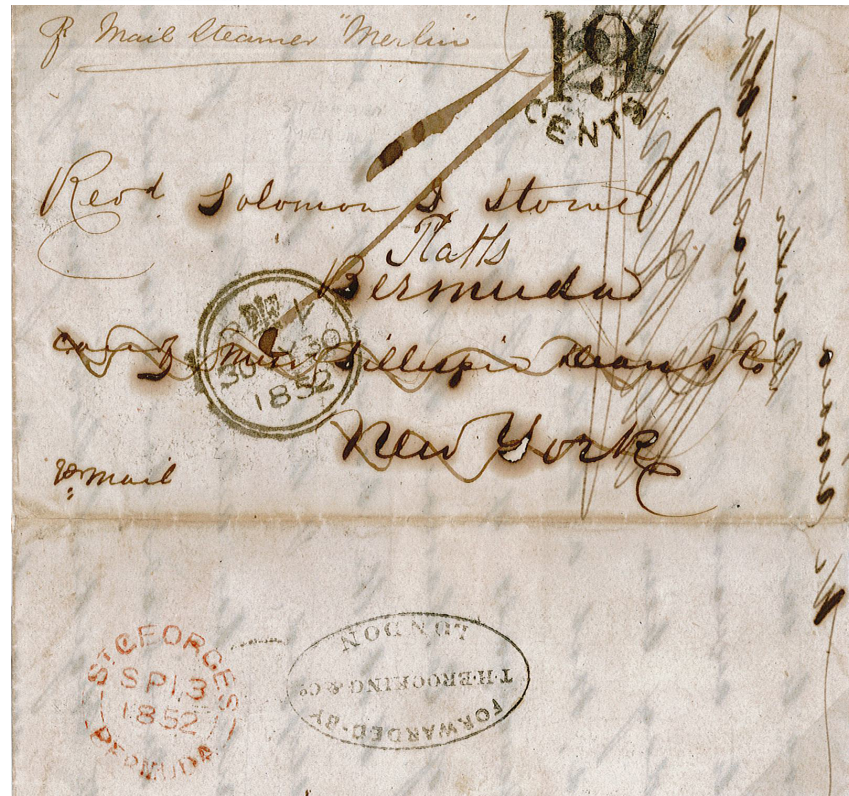 p Mail Steamer "Merlin"
19
CENTS
Revd Solomon J Stowe
Flatts
Bermuda
care of Gillespie Deans & Co
New York
pr mail
30 JY 30
1852
ST. GEORGES
SP 13
1852
BERMUDA
FORWARDED·BY
T·H·BROCKING·&·Co
LONDON